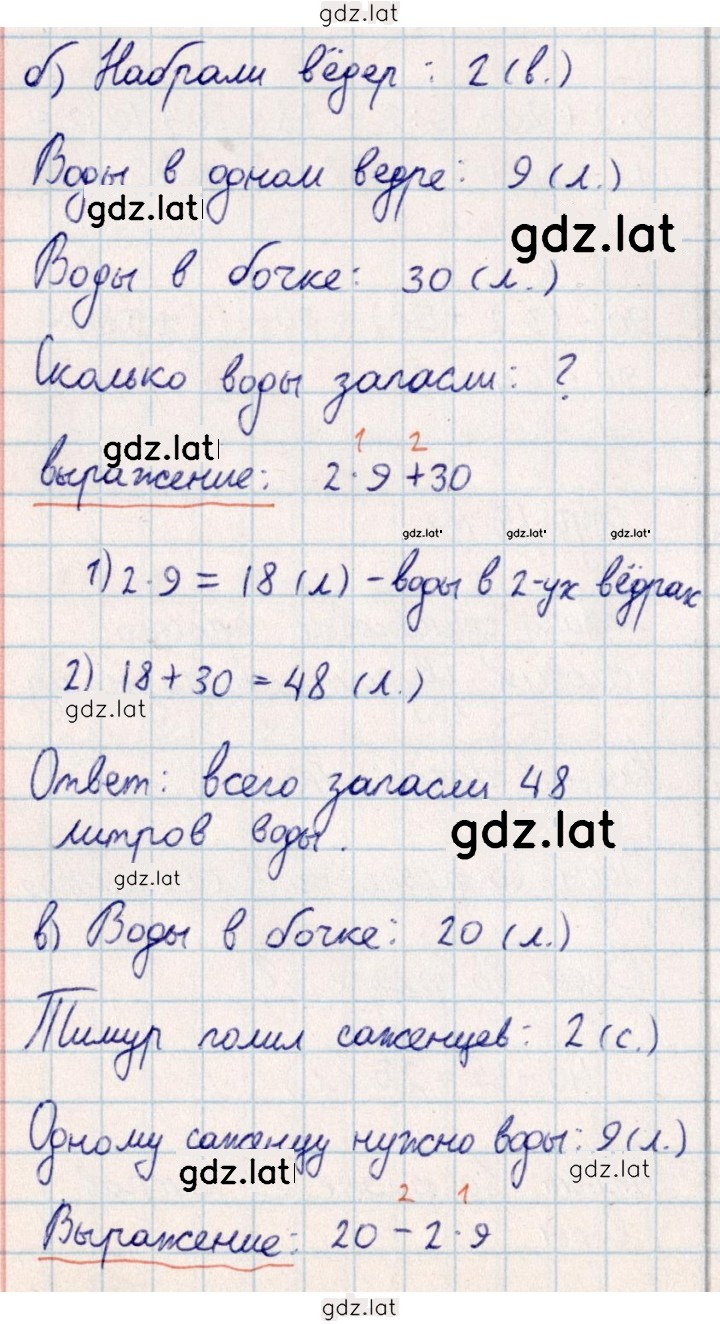 gdz.lat
б) Набрали вёдер: 2 (в.)
Воды в одном ведре: 9 (л.)
gdz.lat
gdz.lat
Воды в бочке: 30 (л.)
Сколько воды запасли: ?
gdz.lat
1 2
выражение: 2·9+30
gdz.lat gdz.lat gdz.lat
1) 2·9 = 18 (л) - воды в 2-ух вёдрах
2) 18 + 30 = 48 (л.)
gdz.lat
Ответ: всего запасли 48
литров воды.
gdz.lat
gdz.lat
в) Воды в бочке: 20 (л.)
Тимур полил саженцев: 2 (с.)
Одному саженцу нужно воды: 9 (л.)
gdz.lat gdz.lat
2 1
Выражение: 20 - 2·9
gdz.lat